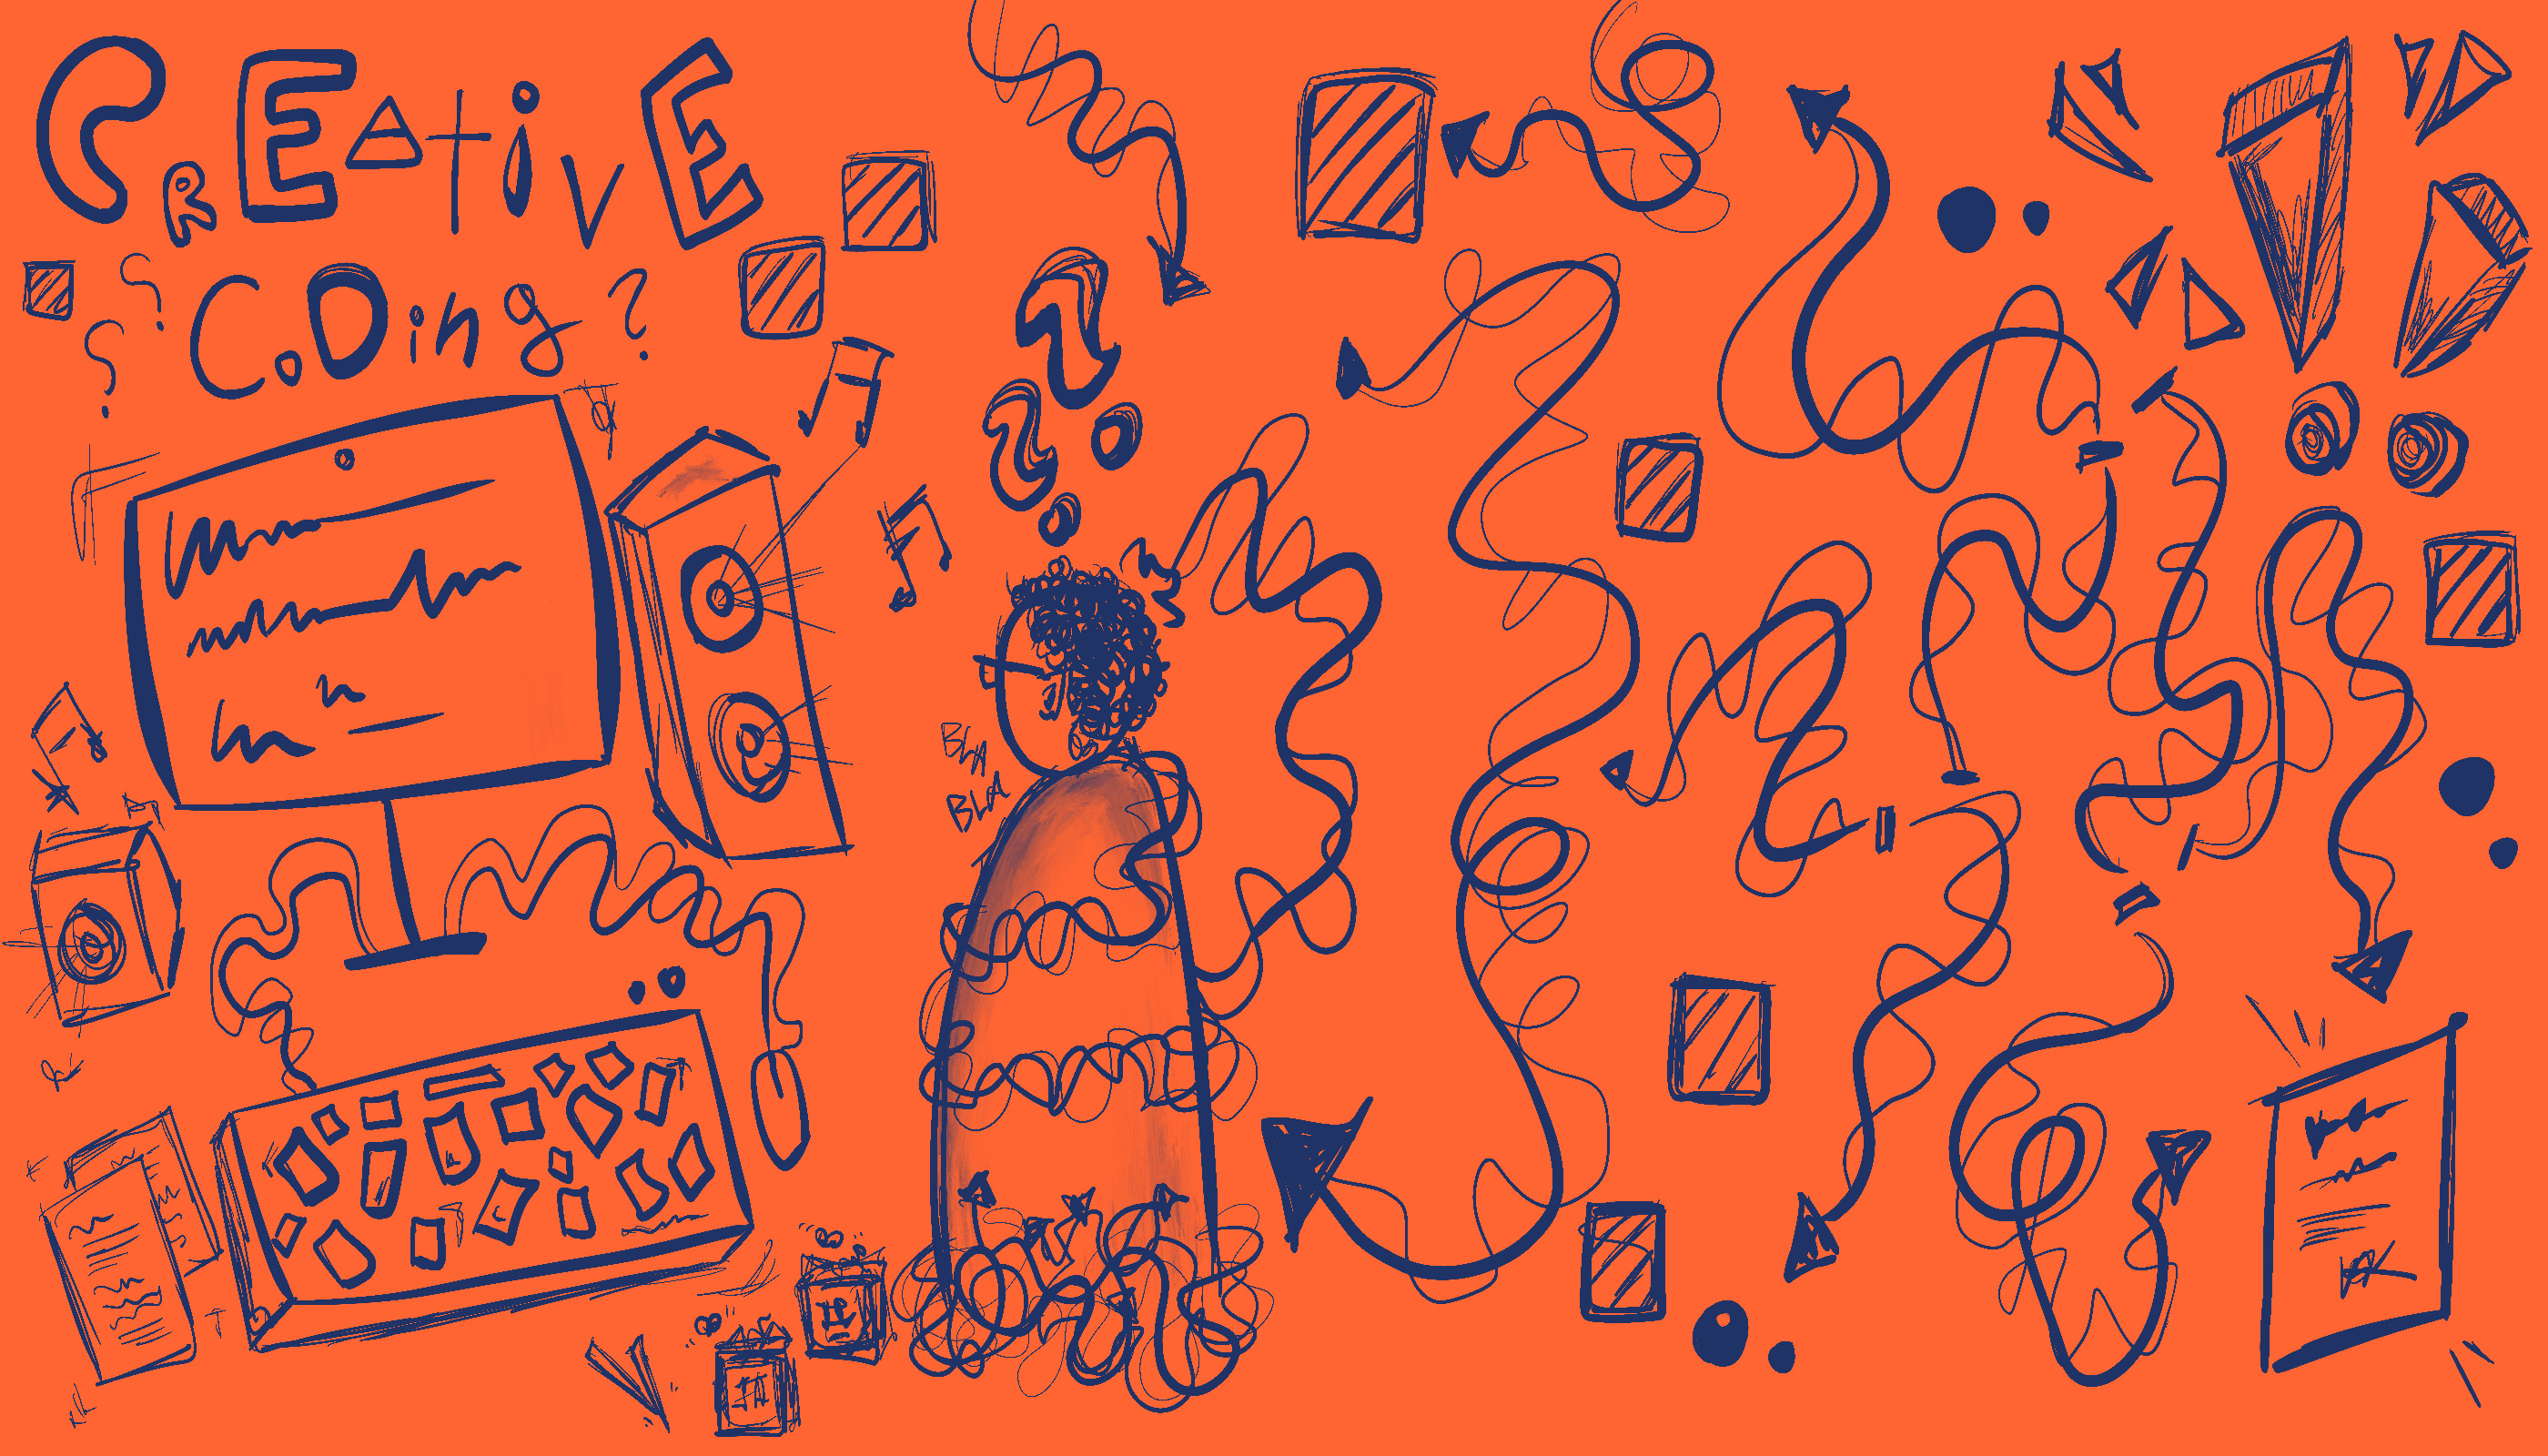 CREATiVE
CODing ?
? ?
BLA
BLA